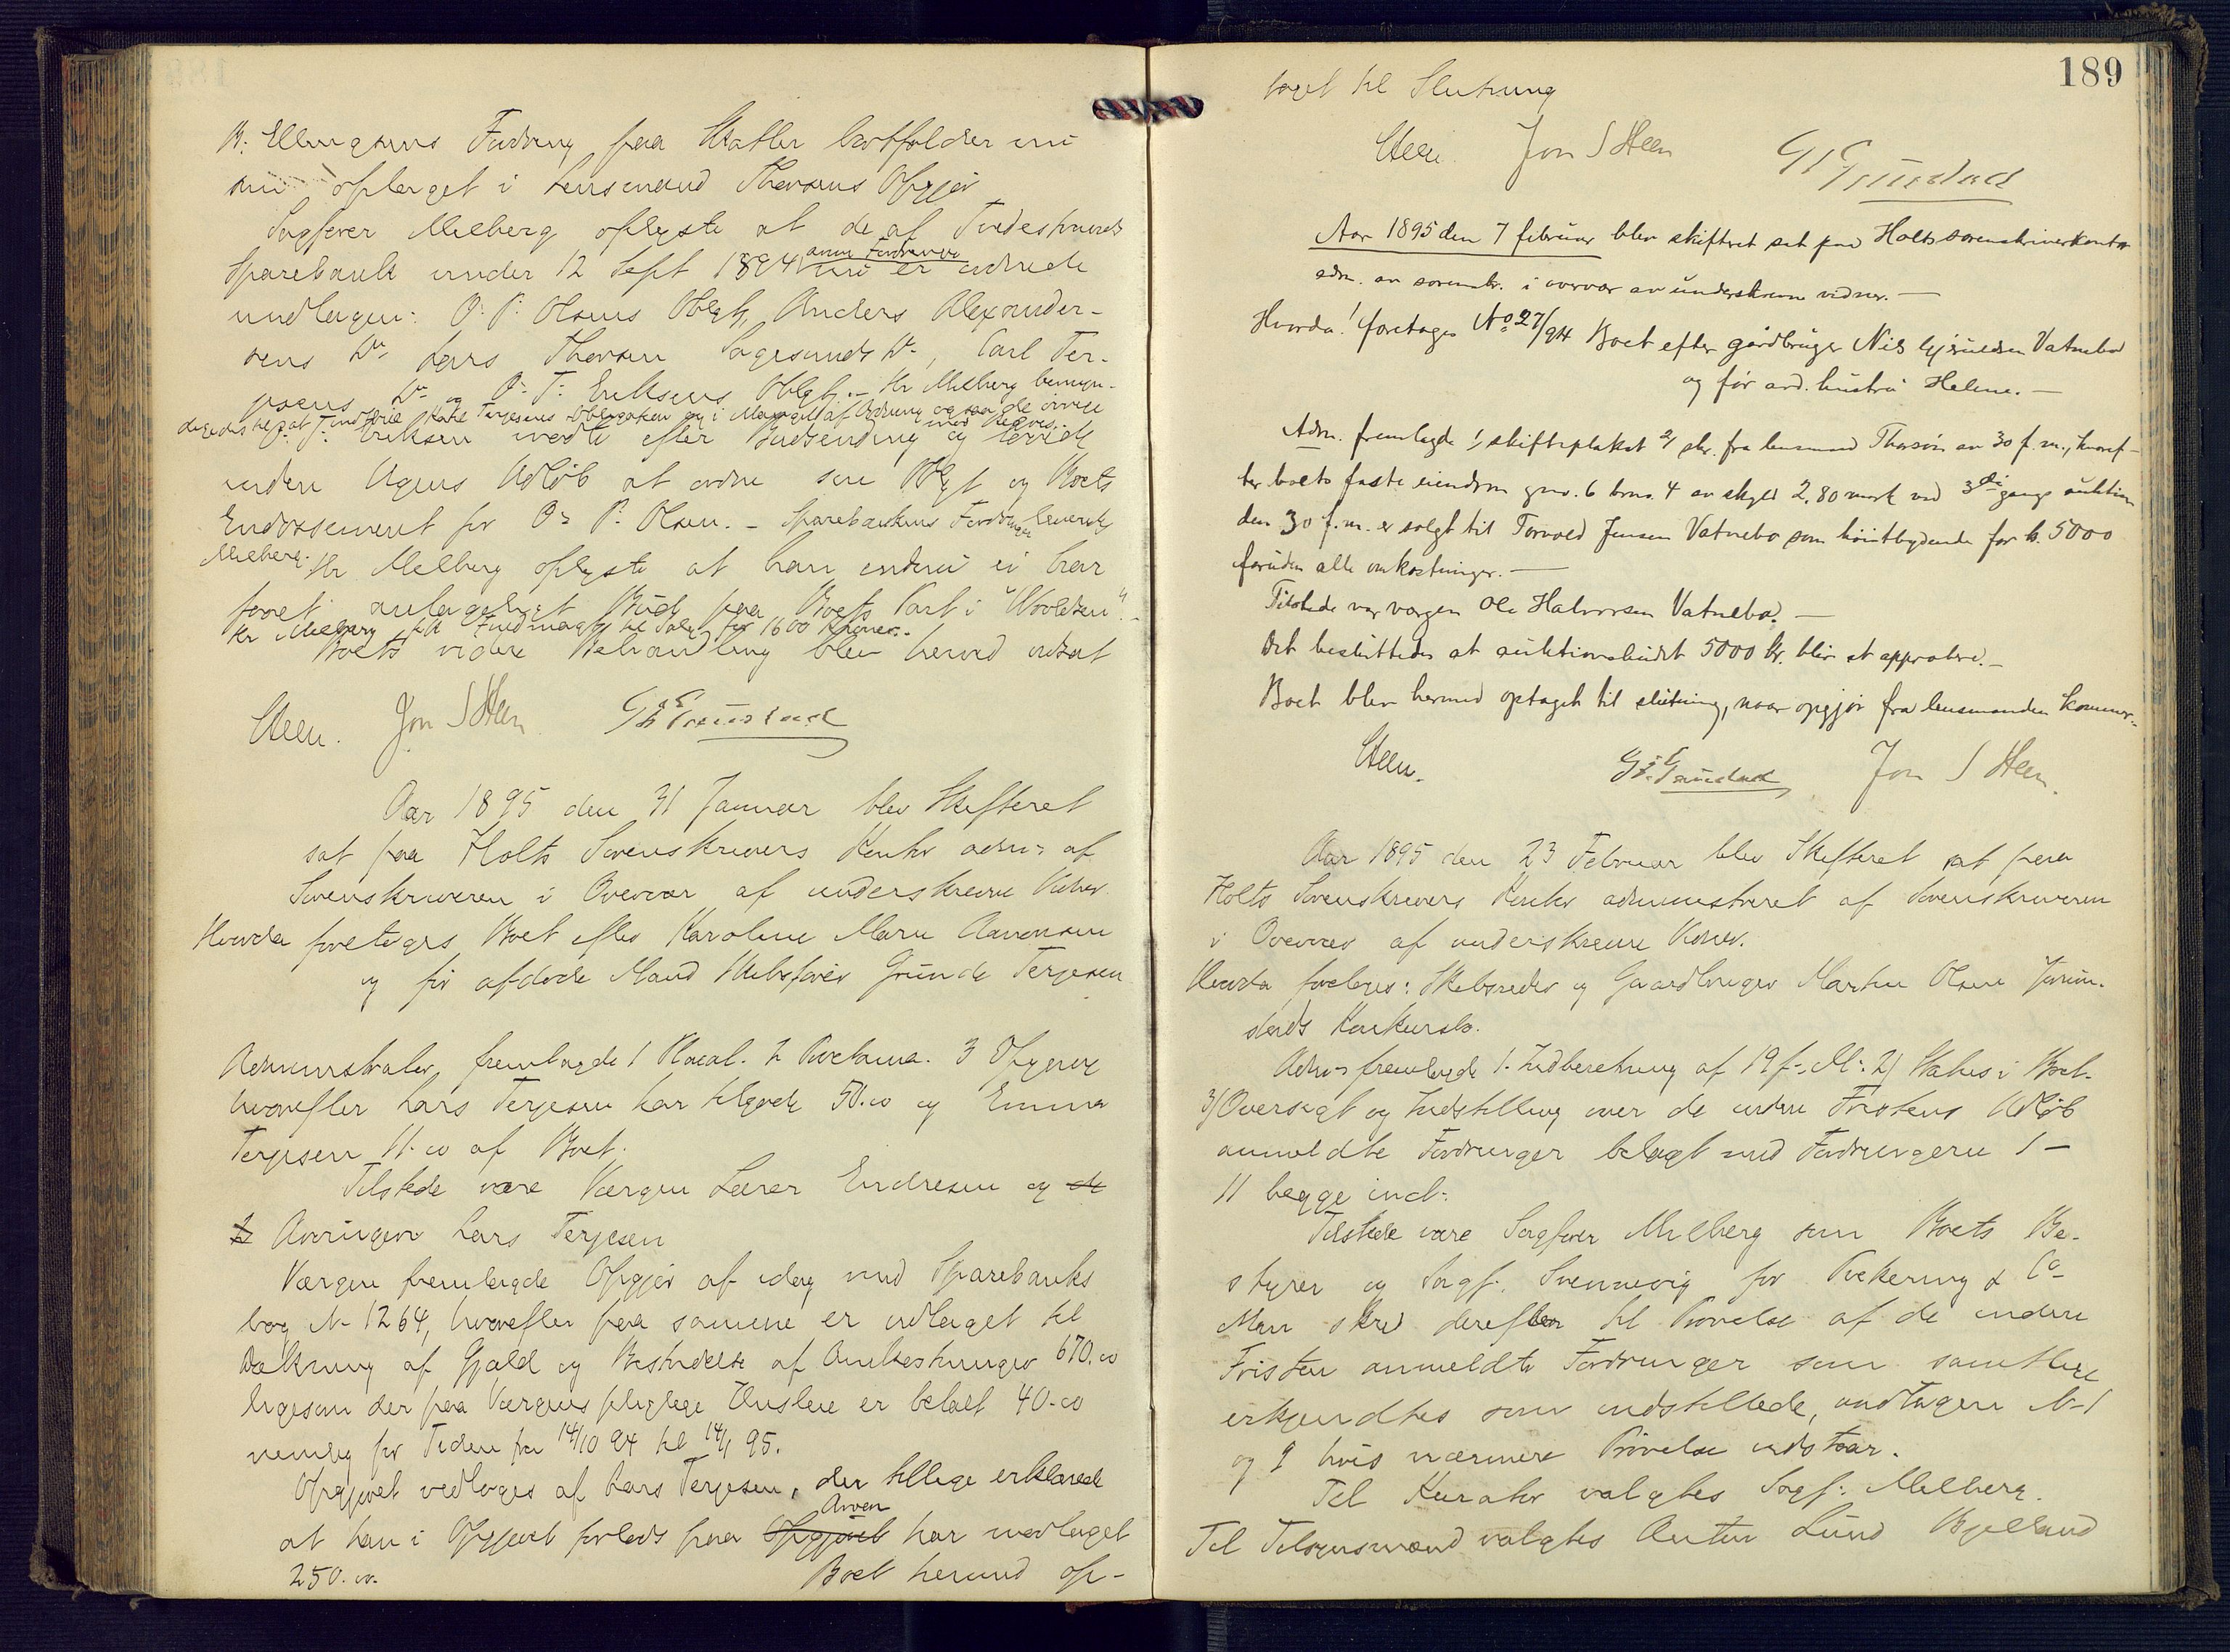 B. Ellingsens Fodring paa Skatter bortfalder nu
optaget i Lensmand Thorsens Opgjør
Sagfører Melberg oplyste at de af Tvedestrands
Sparebank under 12 Sept 1894 anm Fordringer nu er ordnede
undtagen: O. P. Olsens Obligt, Anders Alexander-
sens Do, Lars Thorsen Sagesunds Do, Carl Ter-
jesens Do og O. T. Eriksens Obligt. - Hr Melberg bemyn-
digedes til at indfrie Karl Terjesens Obligation og i Mangel af Ordning ogsaa de øvrige
O. T. Eriksen mødte efter Budsending og lovede
inden Ugens Udløb at ordne sin Obligt og Boets
Endossement for O. P. Olsen. - Sparebankens Fordringer leveredes
Melberg. Hr Melberg oplyste at han endnu ei har
faaet antageligt Bud paa Boets Part i
Hr Melberg fik Fuldmagt til Salg for 1600 Kroner.
Boets videre Behandling blev herved udsat
Steen. Jon S Steen G. E. Graüstad
Aar 1895 den 31 Januar blev Skifteret
sat paa Holts Sorenskrivers Kontor adm: af
Sorenskriveren i Overvær af underskrevne Vidner.
Hvorda foretages Boet efter Karoline Marie Aanonsen
og før afdøde Mand Skibsfører Grunde Terjesen
Administrator fremlagde 1 Placat. 2 Proclama. 3 Opgjør
hvorefter Lars Terjesen har tilgode 50.00 og Emma
Terjesen 11.00 af Boet.
Tilstede vare Værgen Lærer Endresen og de
2 Arvinger Lars Terjesen
Værgen fremlagde Opgjør af idag med Sparebanks
bog N- 1264, hvorefter paa samme er udtaget til
Dækning af Gjæld og Bestridelse af Omkostninger 670.00
ligesom der paa Værgens pligtige Husleie er betalt 40.00
nemlig for Tiden fra 14/10 94 til 14/1 95.
Opgjøret vedtoges af Lars Terjesen, der tillige erklærede
at han i Opgjøret forlods paa Opgjøret Arven har modtaget
250.00. Boet herved op-
189
taget til Slutning
Steen. Jon S Steen G. E. Graüstad
Aar 1895 den 7 februar blev skifteret sat paa Holts sorenskriverkontor
adm. av sorenskr. i overvær av underskrevne vidner. -
Hvorda! foretages No 27/94 Boet efter gårdbruger Nils Gjeruldsen Vatnebo
og før avd. hustru Helene. -
Adm. fremlagde 1/ skifteplakat 2/ skr. fra lensmand Thorsen av 30 f. m., hvoref-
ter boets faste eiendom gno. 6 brno. 4 av skyld 2,80 mark ved 3die gangs auktion
den 30 f. m. er solgt til Torvald Jensen Vatnebo som høistbydende for kr. 5000
foruden alle omkostninger. -
Tilstede var vergen Ole Halvorsen Vatnebo. -
Det besluttedes at auktionsbudet 5000 kr. blir at approbere. -
Boet blev hermed optaget til slutning, naar opgjør fra lensmanden kommer. -
Steen. G. E. Graüstad Jon S Steen.
Aar 1895 den 23 Februar blev Skifteret sat paa
Holts Sorenskrivers Kontor administreret af Sorenskriveren
i Overvær af underskrevne Vidner.
Hvorda foretages: Skibsreder og Gaardbruger Martin Olsen Jorun-
stads Konkursbo.
Adm: fremlagde 1. Indberetning af 19 f. M: 2/ Status i Boet.
3/ Oversigt og Indstilling over de inden Fristens Udløb
anmeldte Fordringer belagt med Fordringerne 1 -
11 begge incl:
Tilstede vare Sagfører Melberg som Boets Be-
styrer og Sagf. Svennevig for Pickering & Co
Man skred derefter til Prøvelse af de inden
Fristen anmeldte Fordringer som samtlige
erkjendtes som indstillede, undtagen N- 1
og 9 hvis nærmere Prøvelse udstaar.
Til Kurator valgtes Sagf: Melberg.
Til Tilsynsmand valgtes Anton Lund Bjelland